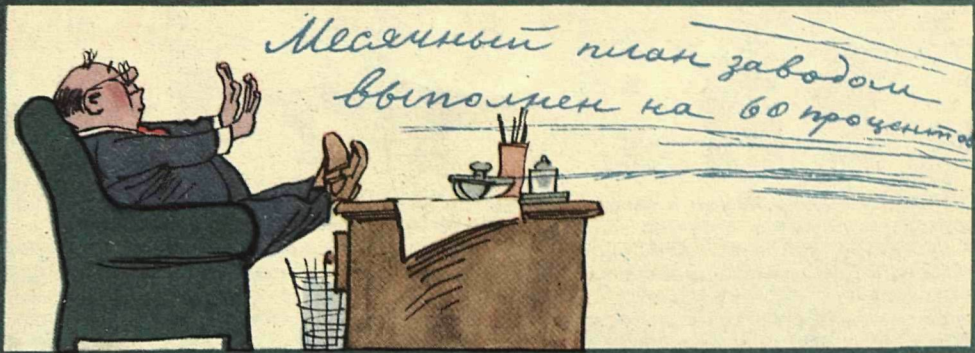 Месячный план заводом
выполнен на 60 процентов